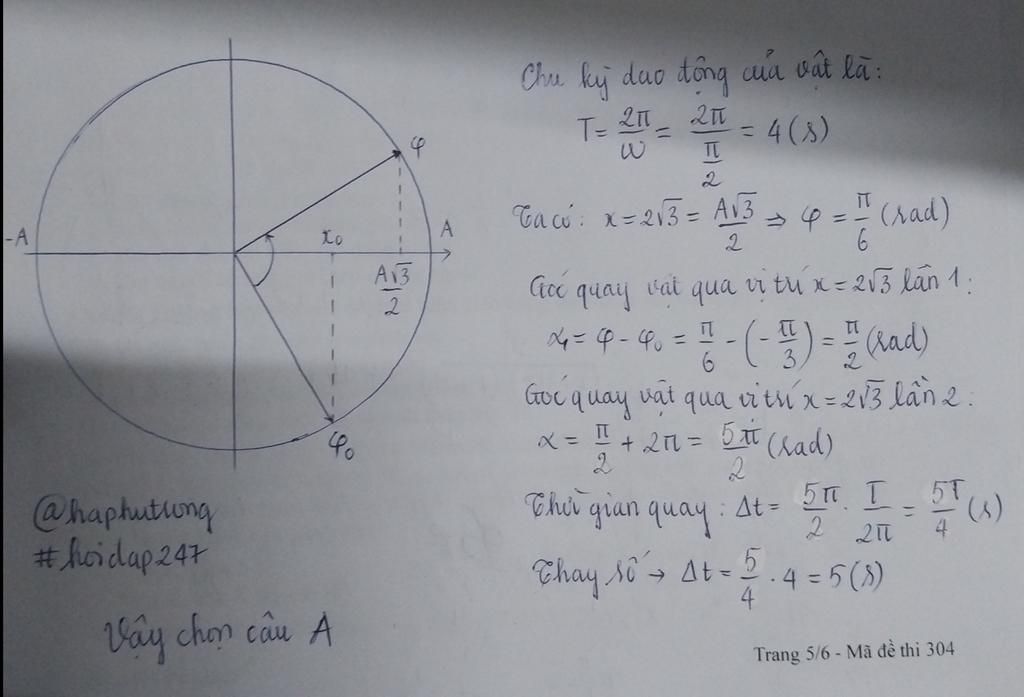 φ
-A
x₀
A
A√3/2
φ₀
@haphutrong
#hoidap247
Vậy chọn câu A
Chu kỳ dao động của vật là:
T = 2π/ω = 2π/(π/2) = 4 (s)
Ta có: x = 2√3 = A√3/2 ⇒ φ = π/6 (rad)
Góc quay vật qua vị trí x = 2√3 lần 1:
α₁ = φ - φ₀ = π/6 - (-π/3) = π/2 (rad)
Góc quay vật qua vị trí x = 2√3 lần 2:
α = π/2 + 2π = 5π/2 (rad)
Thời gian quay: Δt = 5π/2 . T/2π = 5T/4 (s)
Thay số → Δt = 5/4 . 4 = 5 (s)
Trang 5/6 - Mã đề thi 304